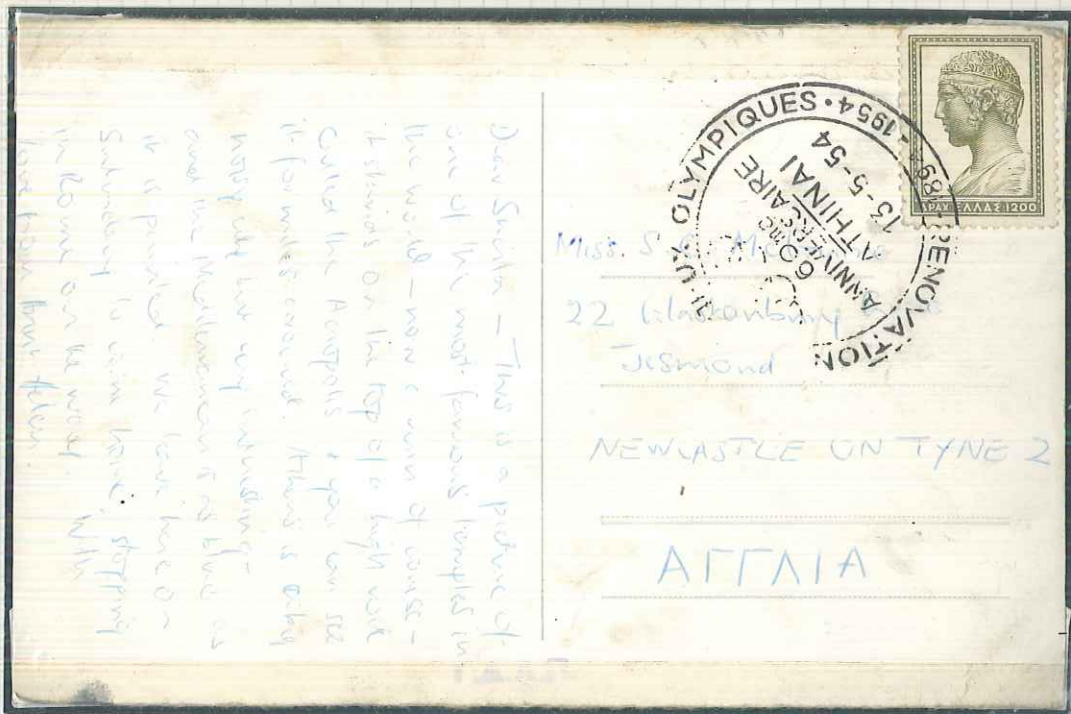 Dear Sheila – This is a picture of
one of the most famous temples in
the world – now a ruin of course –
it stands on the top of a high rock
called the Acropolis & you can see
it for miles around. Athens is a big
noisy city but very interesting
and the Mediterranean is as blue as
it is painted. We leave here on
Saturday to come home, stopping
in Rome on the way. With
love from Aunt Helen.
Miss. S.
22 Glastonbury
Jesmond
NEWCASTLE ON TYNE 2
ΑΓΓΛΙΑ
RENOVATION JEUX OLYMPIQUES • 1894 - 1954
60me
ANNIVERSAIRE
ATHINAI
13-5-54
ΔΡΑΧ ΕΛΛΑΣ 1200